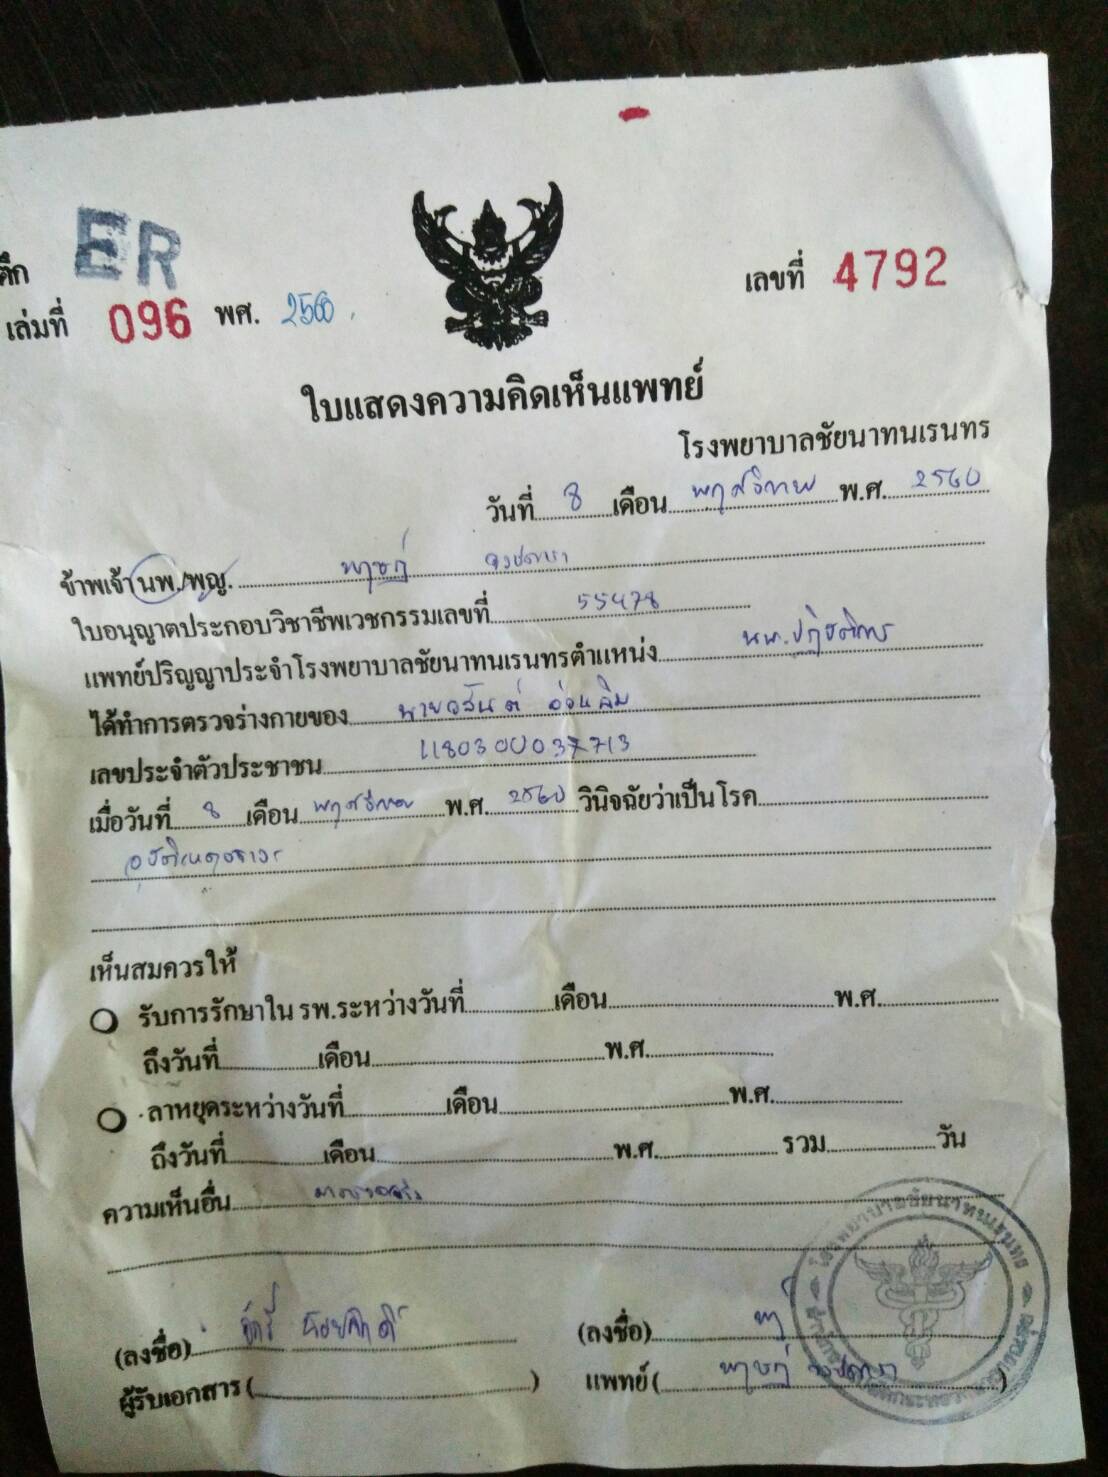 ตึก ER
เล่มที่ 096 พศ. 2560
เลขที่ 4792
ใบแสดงความคิดเห็นแพทย์
โรงพยาบาลชัยนาทนเรนทร
วันที่ 8 เดือน พฤศจิกายน พ.ศ. 2560
ข้าพเจ้า นพ./พญ.
ใบอนุญาตประกอบวิชาชีพเวชกรรมเลขที่ 55478
แพทย์ปริญญาประจำโรงพยาบาลชัยนาทนเรนทรตำแหน่ง นพ.ปฏิบัติการ
ได้ทำการตรวจร่างกายของ นายวสันต์ อ่อนลิม
เลขประจำตัวประชาชน 1180300037713
เมื่อวันที่ 8 เดือน พฤศจิกายน พ.ศ. 2560 วินิจฉัยว่าเป็นโรค
อุบัติเหตุจราจร
เห็นสมควรให้
รับการรักษาใน รพ.ระหว่างวันที่ เดือน พ.ศ.
ถึงวันที่ เดือน พ.ศ.
ลาหยุดระหว่างวันที่ เดือน พ.ศ.
ถึงวันที่ เดือน พ.ศ. รวม วัน
ความเห็นอื่น มาตรวจจริง
(ลงชื่อ)
(ลงชื่อ)
ผู้รับเอกสาร ( )
แพทย์ ( )
โรงพยาบาลชัยนาทนเรนทร